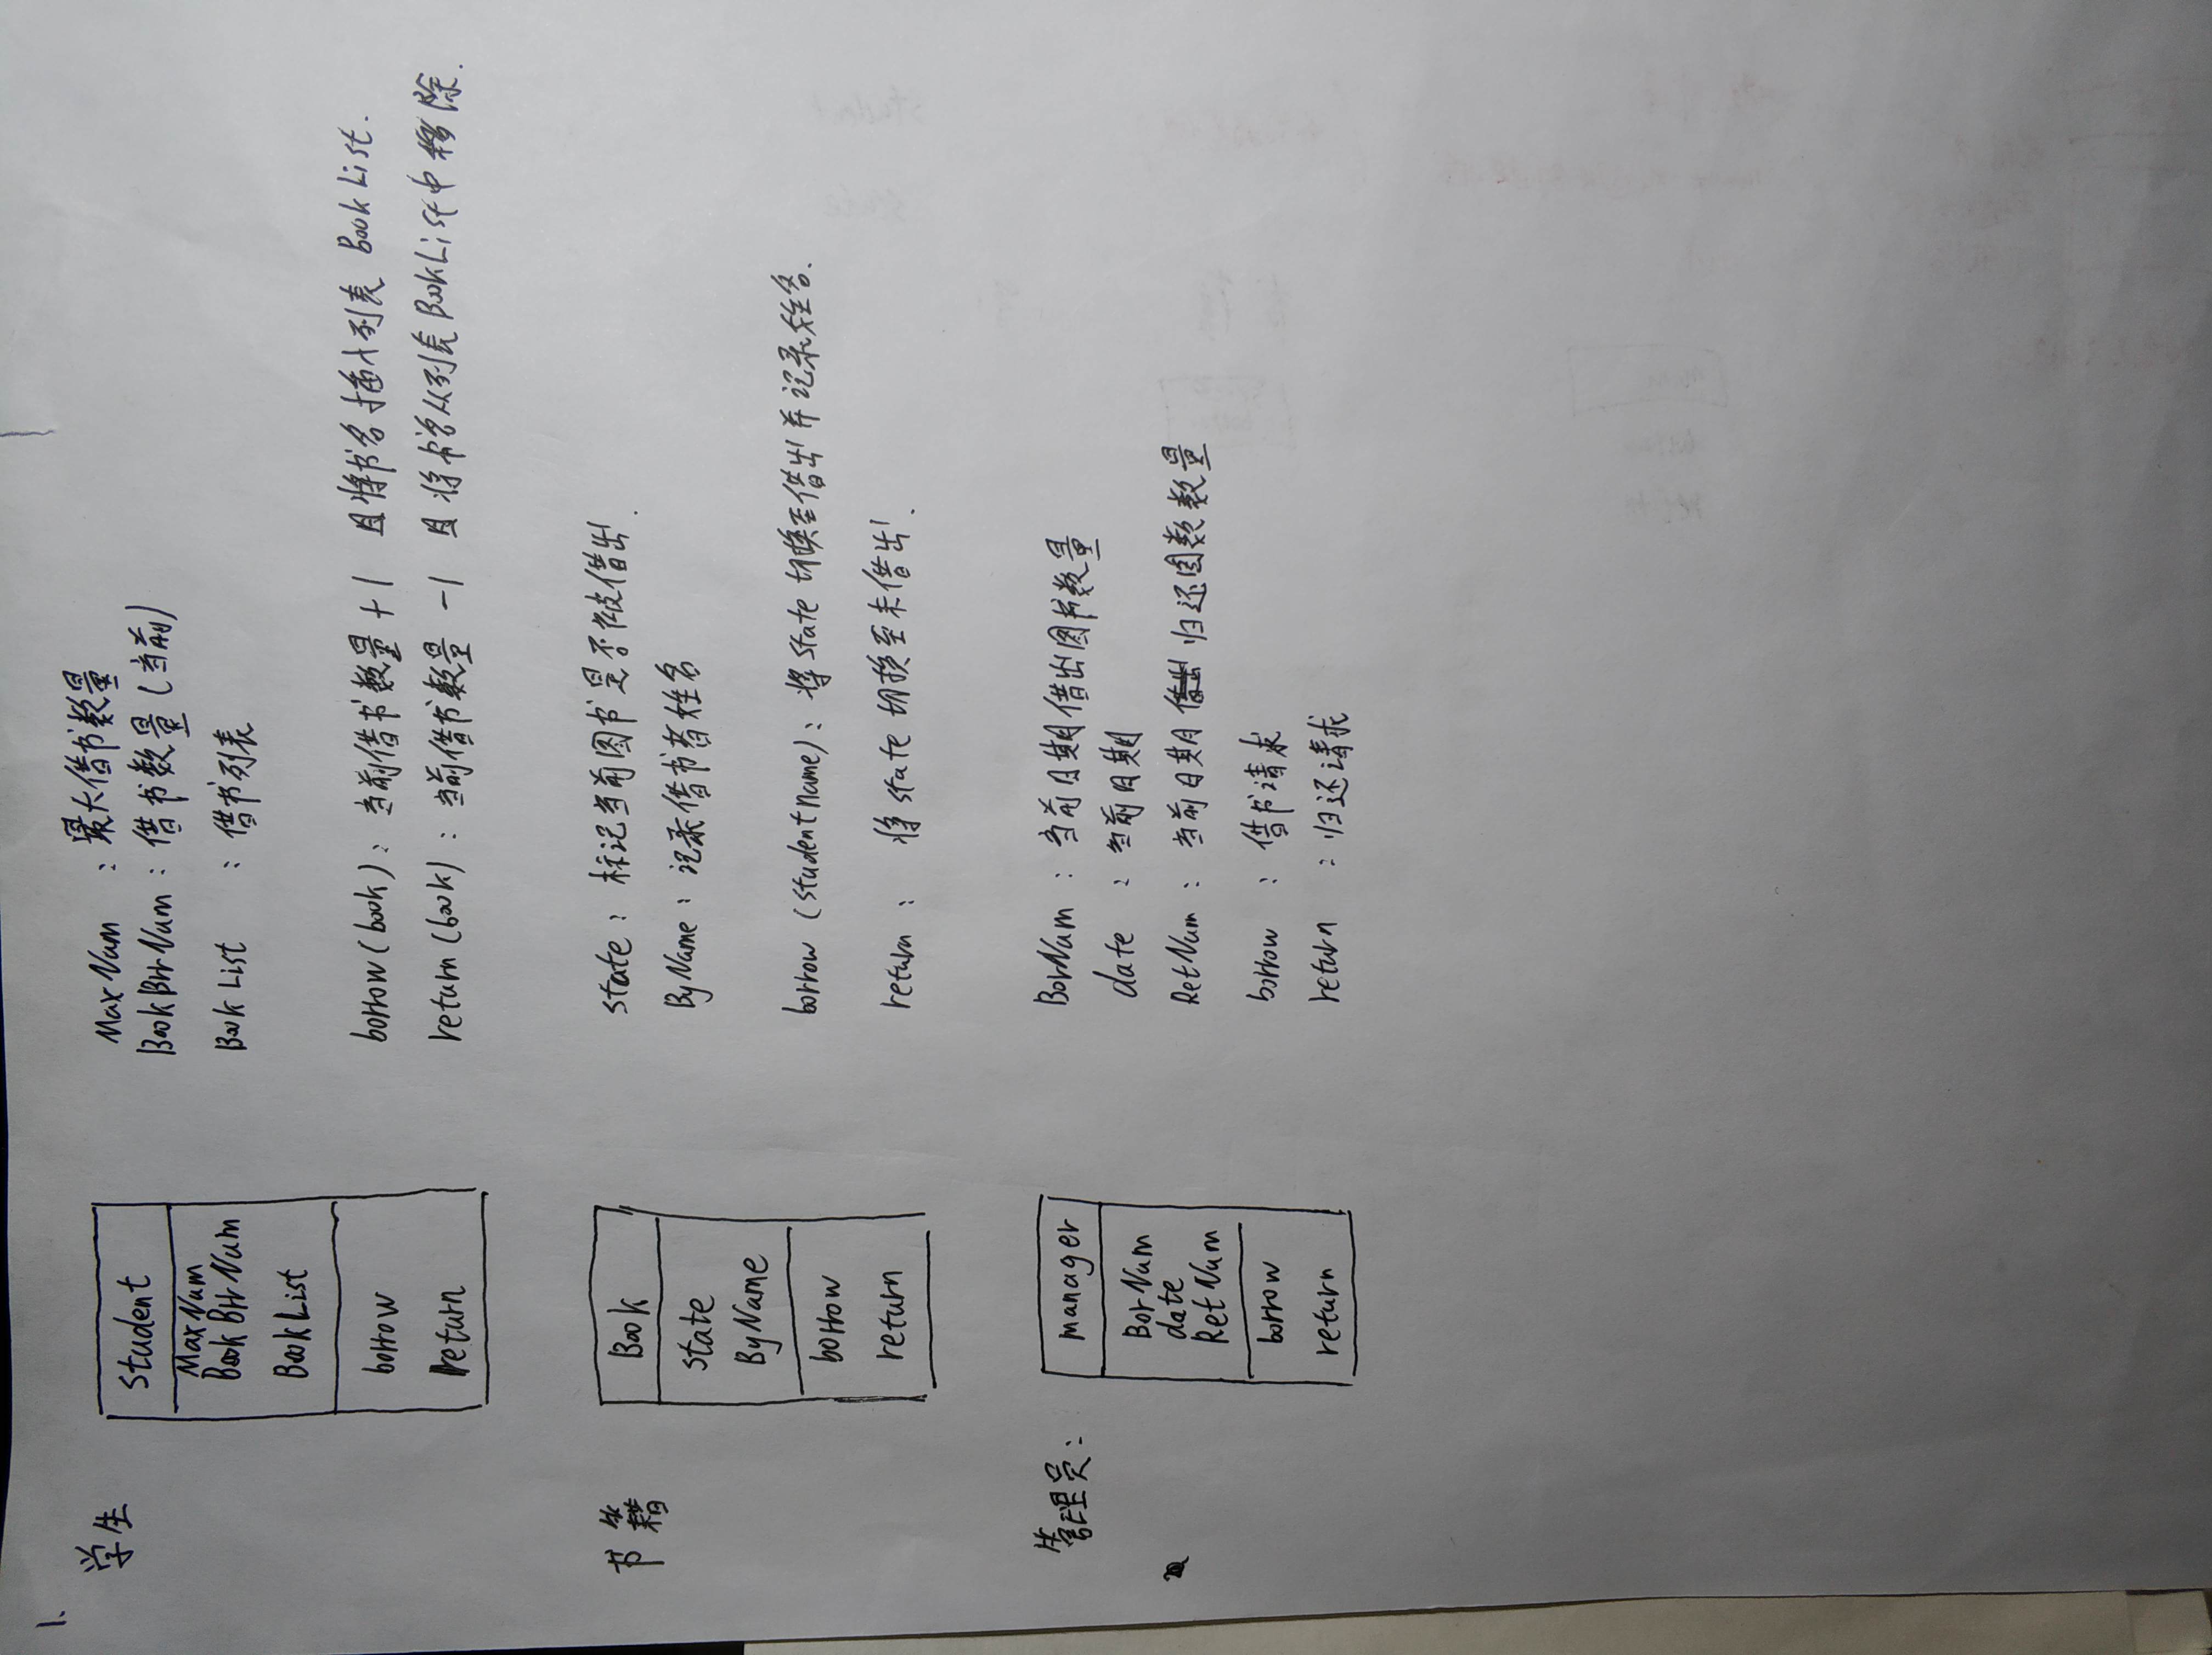 1.
学生
student
MaxNum
BookBrrNum
BookList
borrow
return
MaxNum : 最大借书数量
BookBrrNum : 借书数量(当前)
BookList : 借书列表
borrow(book): 当前借书数量+1 且将书名插入列表 BookList.
return(book): 当前借书数量-1 且将书名从列表BookList中移除.
书籍
Book
state
ByName
borrow
return
state: 标记当前图书是否被借出.
ByName: 记录借书者姓名
borrow (studentname): 将state切换至借出并记录姓名.
return: 将state切换至未借出.
管理员:
manager
BorNum
date
RetNum
borrow
return
BorNum : 当前日期借出图书数量
date : 当前日期
RetNum : 当前日期借出归还图数数量
borrow : 借书请求
return : 归还请求